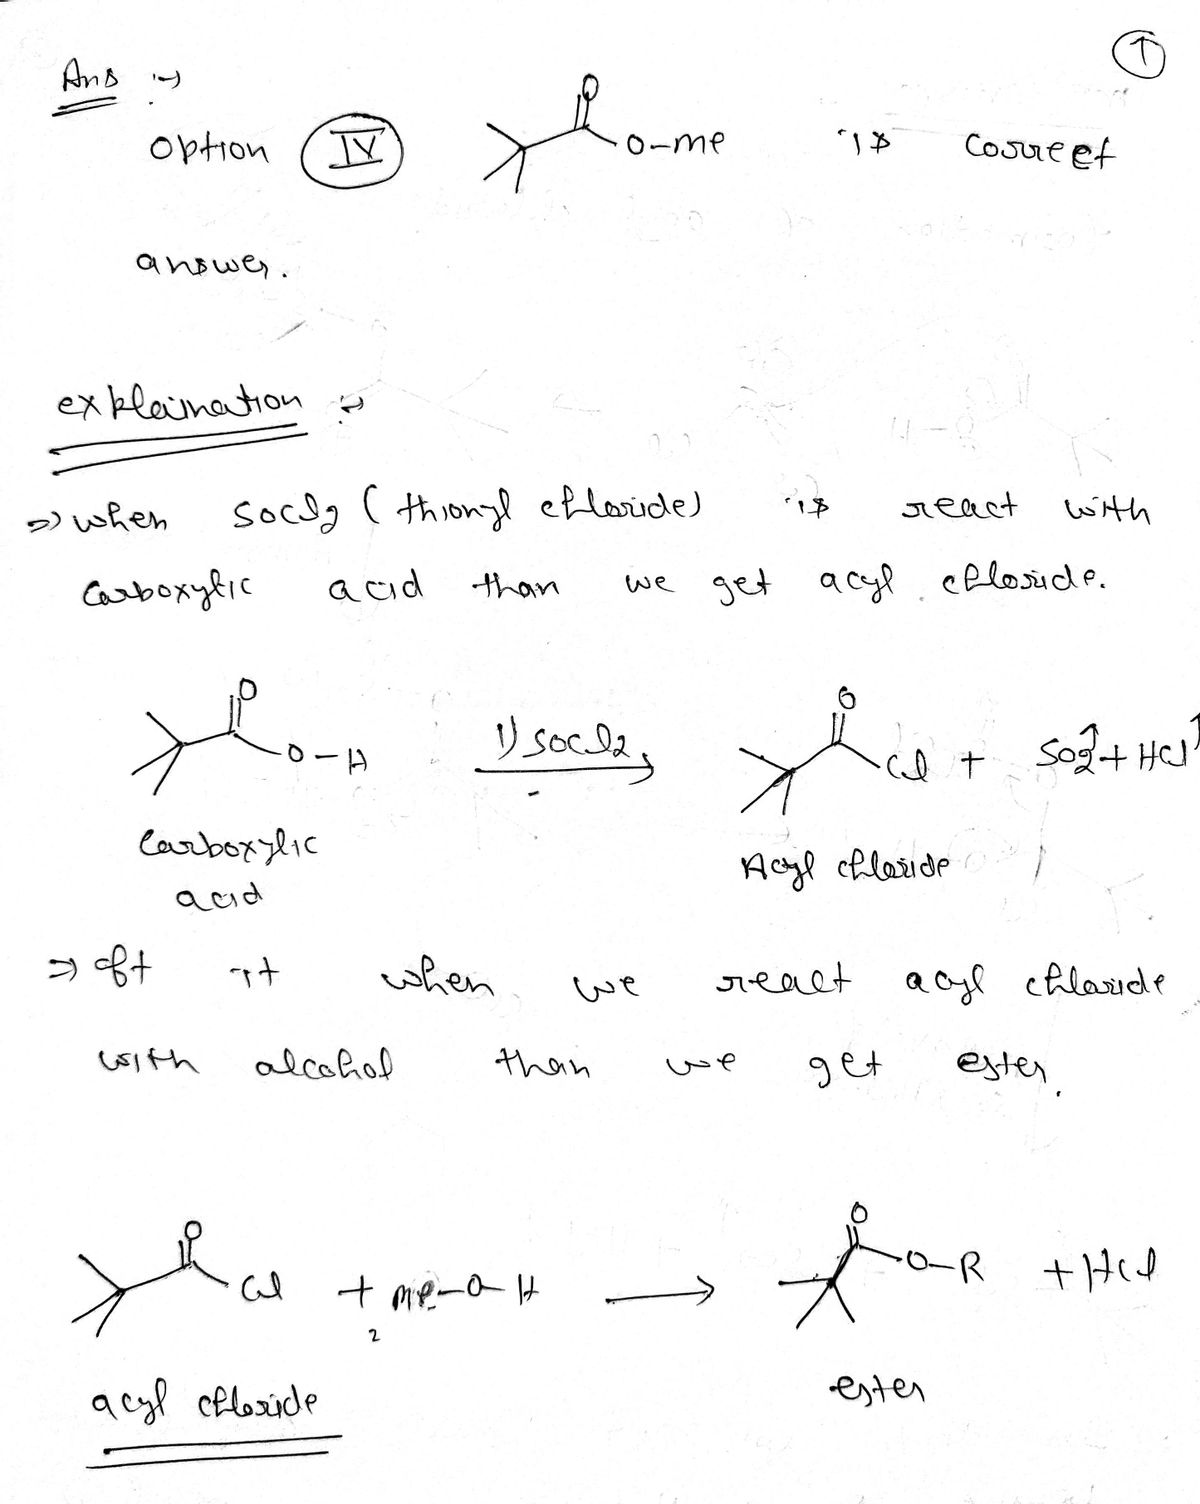 1
Ans :-
Option IV O O-me is correct
answer.
explaination :-
=> when SOCl2 (thionyl chloride) is react with
Carboxylic acid than we get acyl chloride.
O O-H 1) SOCl2 O Cl + SO2↑ + HCl↑
Carboxylic
acid
Acyl chloride
=> it when we react acyl chloride
with alcohol than we get ester.
O Cl + Me-O-H → O O-R + HCl
2
acyl chloride
ester